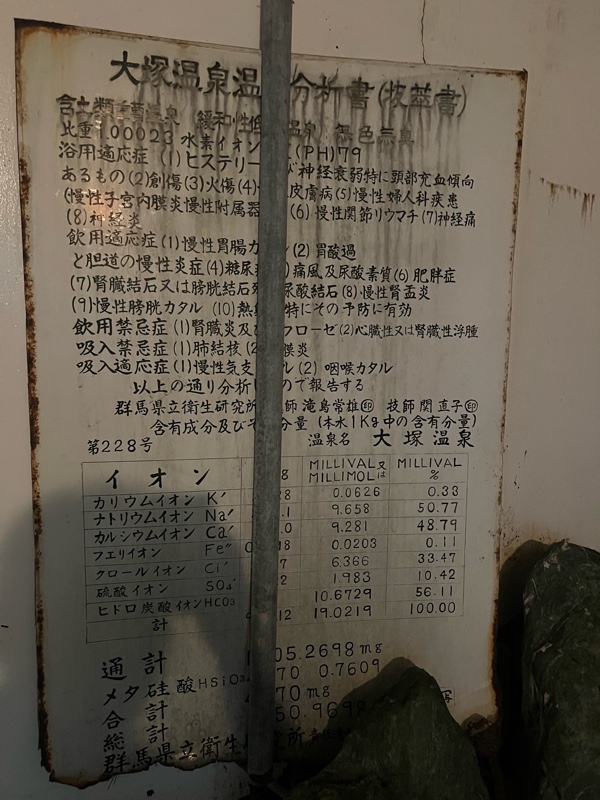 大塚温泉温 分析書(抜萃書)
含土類 温泉 緩和性低 温泉 無色無臭
比重1.00023 水素イオン (PH)79
浴用適応症 (1)ヒステリー び神経衰弱特に頸部充血傾向
あるもの(2)創傷(3)火傷(4) 皮膚病(5)慢性婦人科疾患
(慢性子宮内膜炎慢性附属器 (6)慢性関節リウマチ(7)神経痛
(8)神経炎
飲用適応症(1)慢性胃腸カ (2)胃酸過
と胆道の慢性炎症(4)糖尿 痛風及尿酸素質(6)肥胖症
(7)腎臓結石又は膀胱結石 尿酸結石(8)慢性腎盂炎
(9)慢性膀胱カタル (10)熱 特にその予防に有効
飲用禁忌症(1)腎臓炎及び フローゼ(2)心臓性又は腎臓性浮腫
吸入禁忌症(1)肺結核(2 膜炎
吸入適応症(1)慢性気支 ル(2)咽喉カタル
以上の通り分析 ので報告する
群馬県立衛生研究所 師 滝島常雄㊞ 技師 関 直子㊞
含有成分及びそ 分量 (本水1Kg中の含有分量)
第228号 温泉名 大塚温泉
イオン 8 MILLIVAL又は MILLIMOL MILLIVAL %
カリウムイオン K′ 28 0.0626 0.33
ナトリウムイオン Na′ .1 9.658 50.77
カルシウムイオン Ca″ .0 9.281 48.79
フエリイオン Fe″ 0 18 0.0203 0.11
クロールイオン Ci′ 7 6.366 33.47
硫酸イオン SO₄″ 2 1.983 10.42
ヒドロ炭酸イオン HCO₃ 10.6729 56.11
計 12 19.0219 100.00
通計 05.2698mg
メタ硅酸HSiO₃ 70 0.7609
合計 70mg
総計 50.969
群馬県立衛生 所